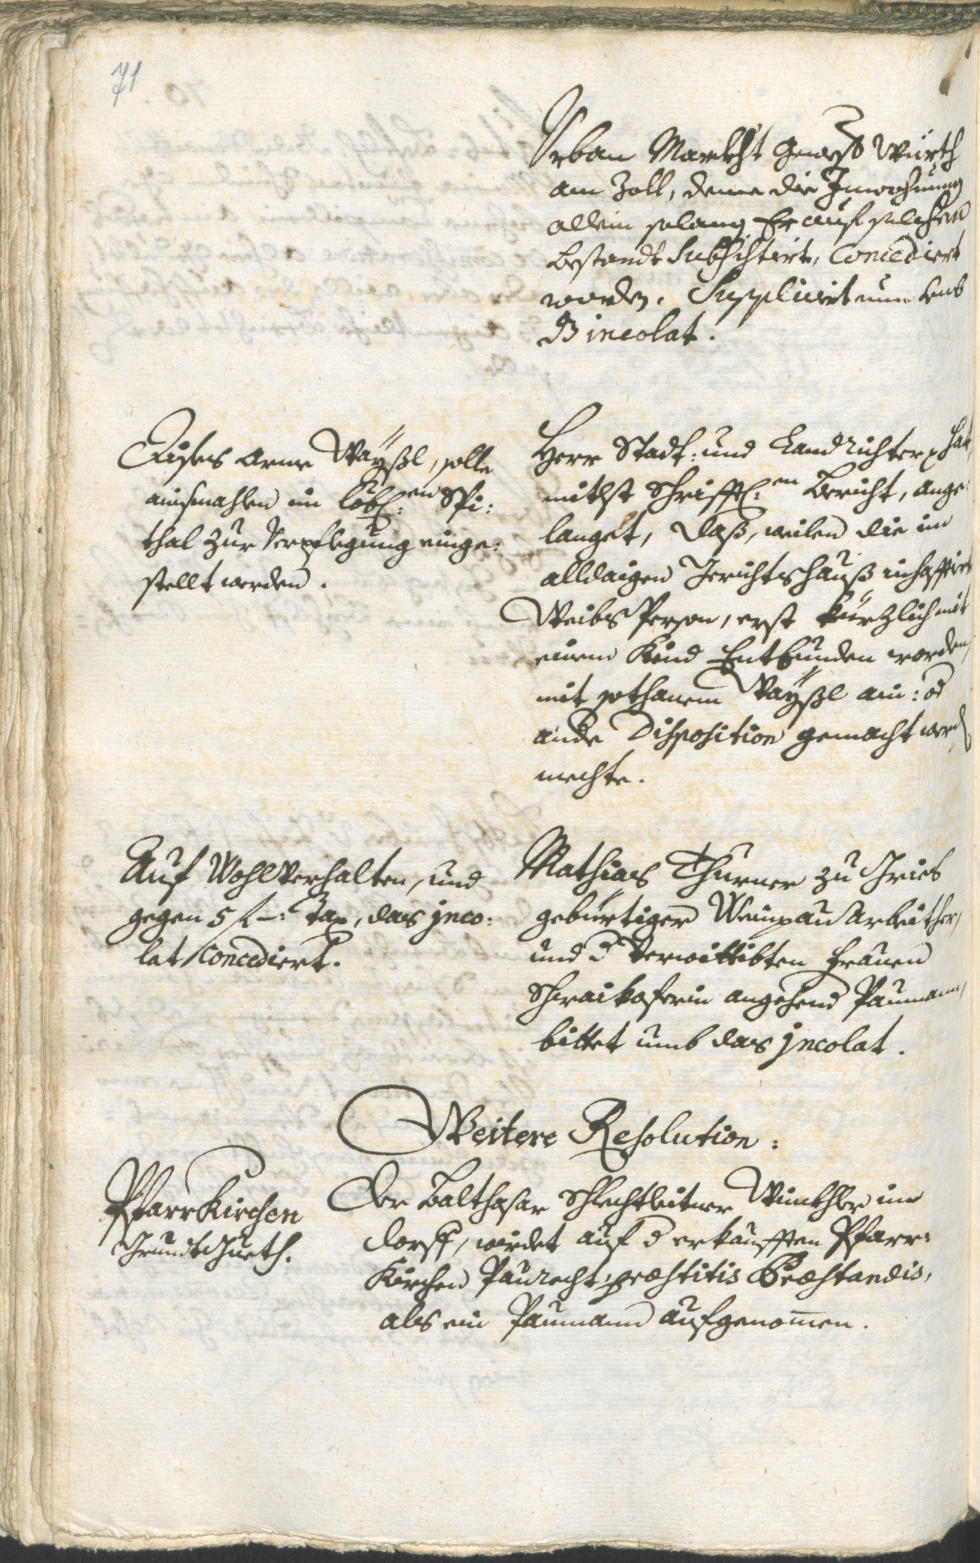 71
Urban Markht gewester Würth
am Zoll, deme die Inwohnung
allein solang Er auf solchem
Bestandt Subsistirt, Concediert
worden. Supplicirt nun umb
dz incolat.
Dises arme Waÿsl, solle
einsmahlen im Löbl:en Spi:
thal zur Verpflegung einge:
stellt werden.
Herr Stadt: und Landrichter hat
mitlst Schrifftl:en Bericht, ange:
langet, daß, weilen die im
alldaigen Gerichtshauß inhafftirte
Weibs Person, erst kürzlich mit
einem Kind Entbunden worden,
mit sothanem Waÿsl ain: od
ande Disposition gemacht werden
mechte.
Auf Wohlverhalten, und
gegen 5 f –: Tax, das inco:
lat Concediert.
Mathias Thurner zu Gries
gebürtiger Weinpau Arbeither,
und d verwittibten Frauen
angehend Paumann,
bittet umb das jncolat.
Weitere Resolution:
PfarrKirchen
Grundt Gueth.
Der Balthasar Schlechtleitner im
Dorff, wirdet auf d erkaufften Pfarr:
Kirchen Paurecht, præstitis Præstandis,
als ein Paumann aufgenom̄en.